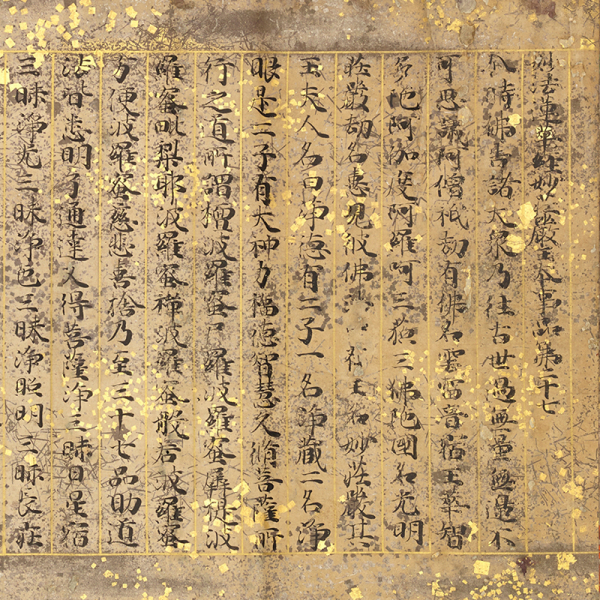 妙法蓮華經妙莊嚴王本事品第二十七
尒時佛告諸大衆乃往古世過無量無邊不
可思議阿僧祇劫有佛名雲雷音宿王華智
多陀阿伽度阿羅訶三藐三佛陀國名光明
莊嚴劫名憙見彼佛法有王名妙莊嚴其
王夫人名曰淨德有二子一名淨藏二名淨
眼是二子有大神力福德智慧久脩菩薩所
行之道所謂檀波羅蜜尸羅波羅蜜羼提波
羅蜜毗梨耶波羅蜜禪波羅蜜般若波羅蜜
方便波羅蜜慈悲喜捨乃至三十七品助道
法皆悉明了通達又得菩薩淨三昧日星宿
三昧淨光三昧淨色三昧淨照明三昧長莊